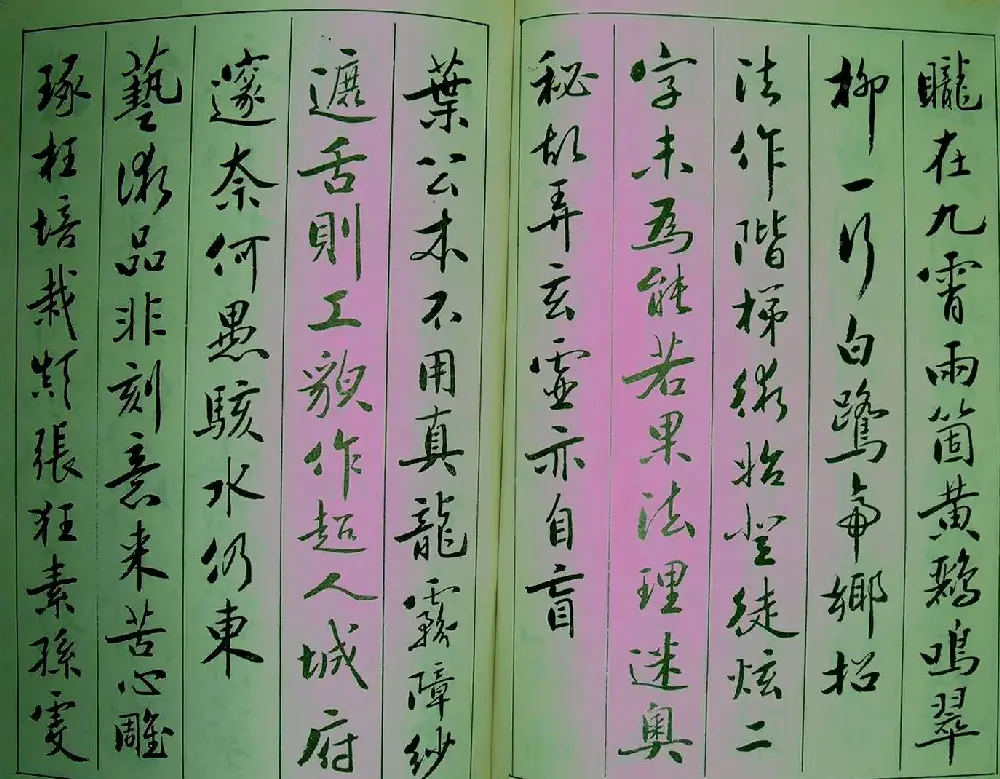 矓在九霄兩箇黃鸝鳴翠
柳一行白鷺招
法作階梯術始登徒炫二
字未為能若果法理迷奧
秘故弄玄虛亦自盲
葉公本不用真龍霧障紗
遮舌則工貌作超人城府
邃奈何愚駭水仍東
藝術品非刻意来苦心雕
琢枉培栽顛張狂素孫虔